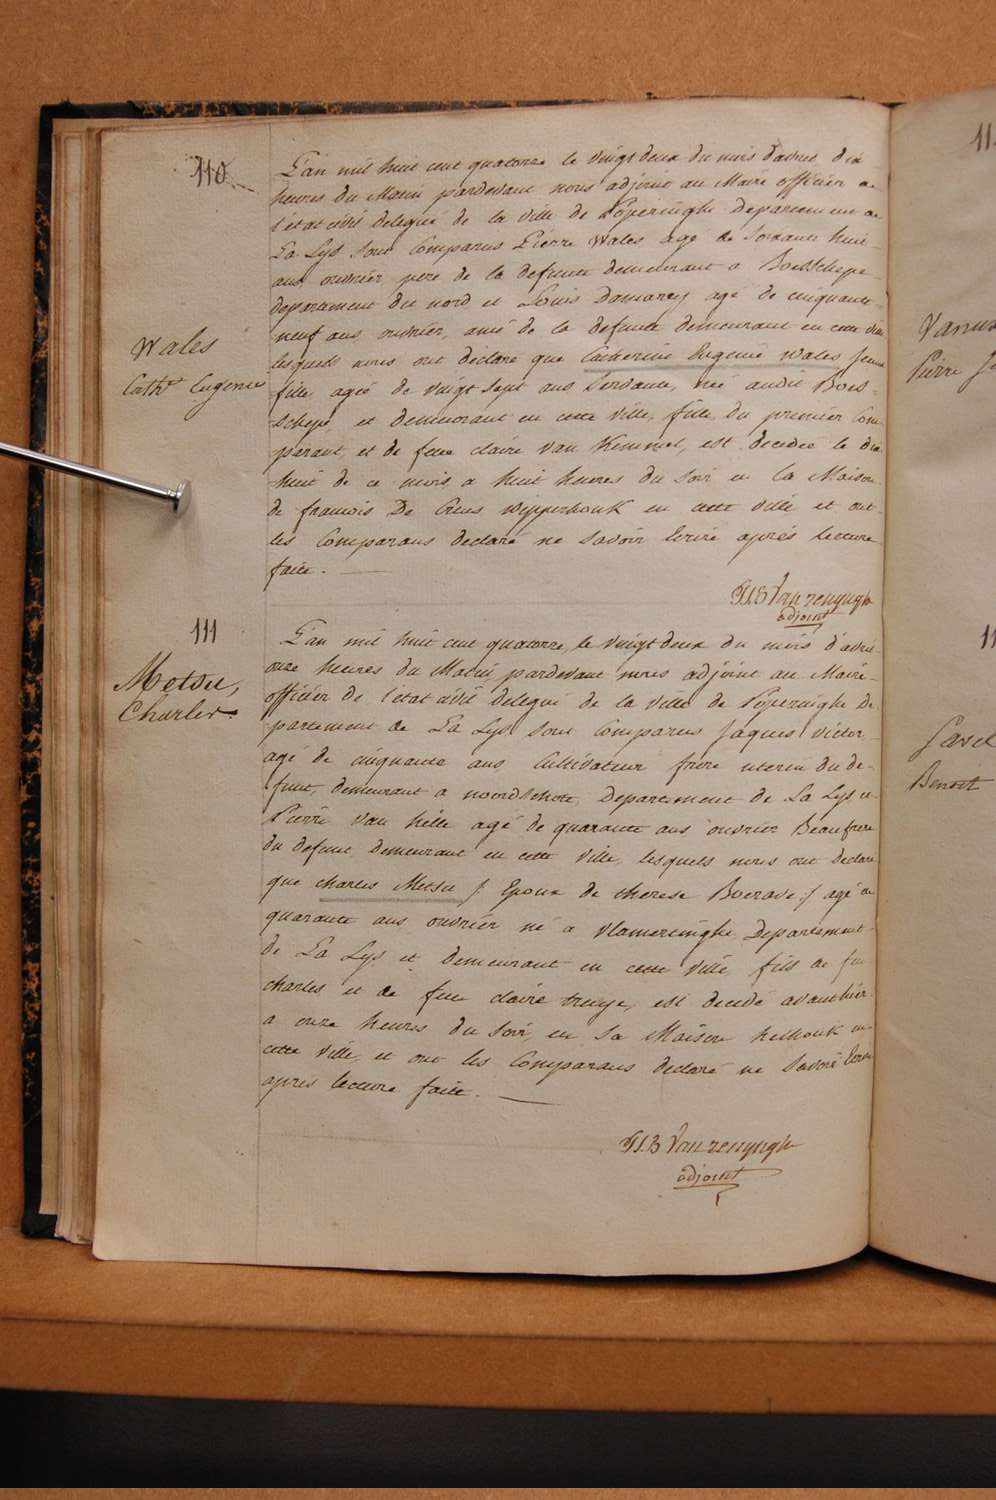 110
L'an mil huit cent quatorze le vingt deux du mois d'avril, dix
heures du Matin pardevant nous adjoint au Maire officier de
l'état civil delegué de la ville de Poperinghe Departement de
La Lys sont Comparus Pierre Wales agé de soixante huit
ans ouvrier, pere de la defunte demeurant a Boesschepe
departement du nord et Louis Damarey agé de cinquante
neuf ans ouvrier, ami de la defunte demeurant en cette ville
Wales
Cathe Eugenie
lesquels nous ont declaré que Catherine Eugenie Wales jeune
fille agée de vingt sept ans Servante, née audit Boes-
schepe, et demeurant en cette ville, fille du premier Com
parant, et de feue claire van Kemmel, est decedée le dix
huit de ce mois a huit heures du soir en la Maison
de francois De Creus wipperhouk en cette ville et ont
les Comparans declaré ne savoir Ecrire après lecture
faite.
P.J.B Vanrenynghe
adjoint
111
L'an mil huit cent quatorze, le vingt deux du mois d'avril
Metsu,
Charles.
onze heures du Matin, pardevant nous adjoint au Maire
officier de l'état civil delegué de la ville de Poperinghe De
partement de La Lys sont Comparus Jaques victor
agé de cinquante ans, Cultivateur frere uterin du de-
funt, demeurant a noordschote, Departement de La Lys et
Pierre van hille agé de quarante ans ouvrier Beaufrere
du defunt Demeurant en cette ville, lesquels nous ont declaré
que charles Metsu /: Epoux de therese Boerave :/ agé de
quarante ans ouvrier né a vlamertinghe Departement
de La Lys et Demeurant en cette ville fils de feu
charles et de feue claire truye, est decedé avanthier
a onze heures du soir, en sa Maison helhouk en
cette ville, et ont les Comparans declaré ne savoir Ecrire
après lecture faite.
P.J.B Vanrenynghe
adjoint
11
Pierre
Benoit